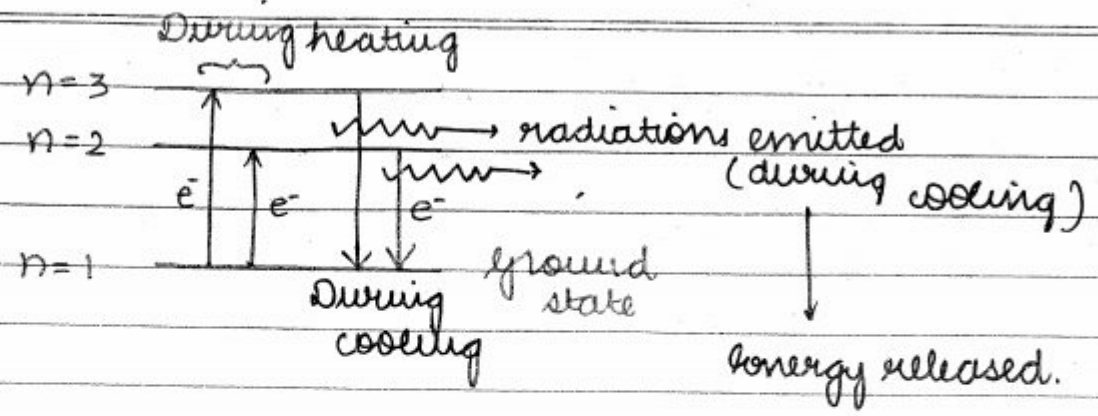 During heating
n=3
n=2
radiations emitted
(during cooling)
e⁻ e⁻ e⁻
n=1
ground
state
During
cooling
Energy released.